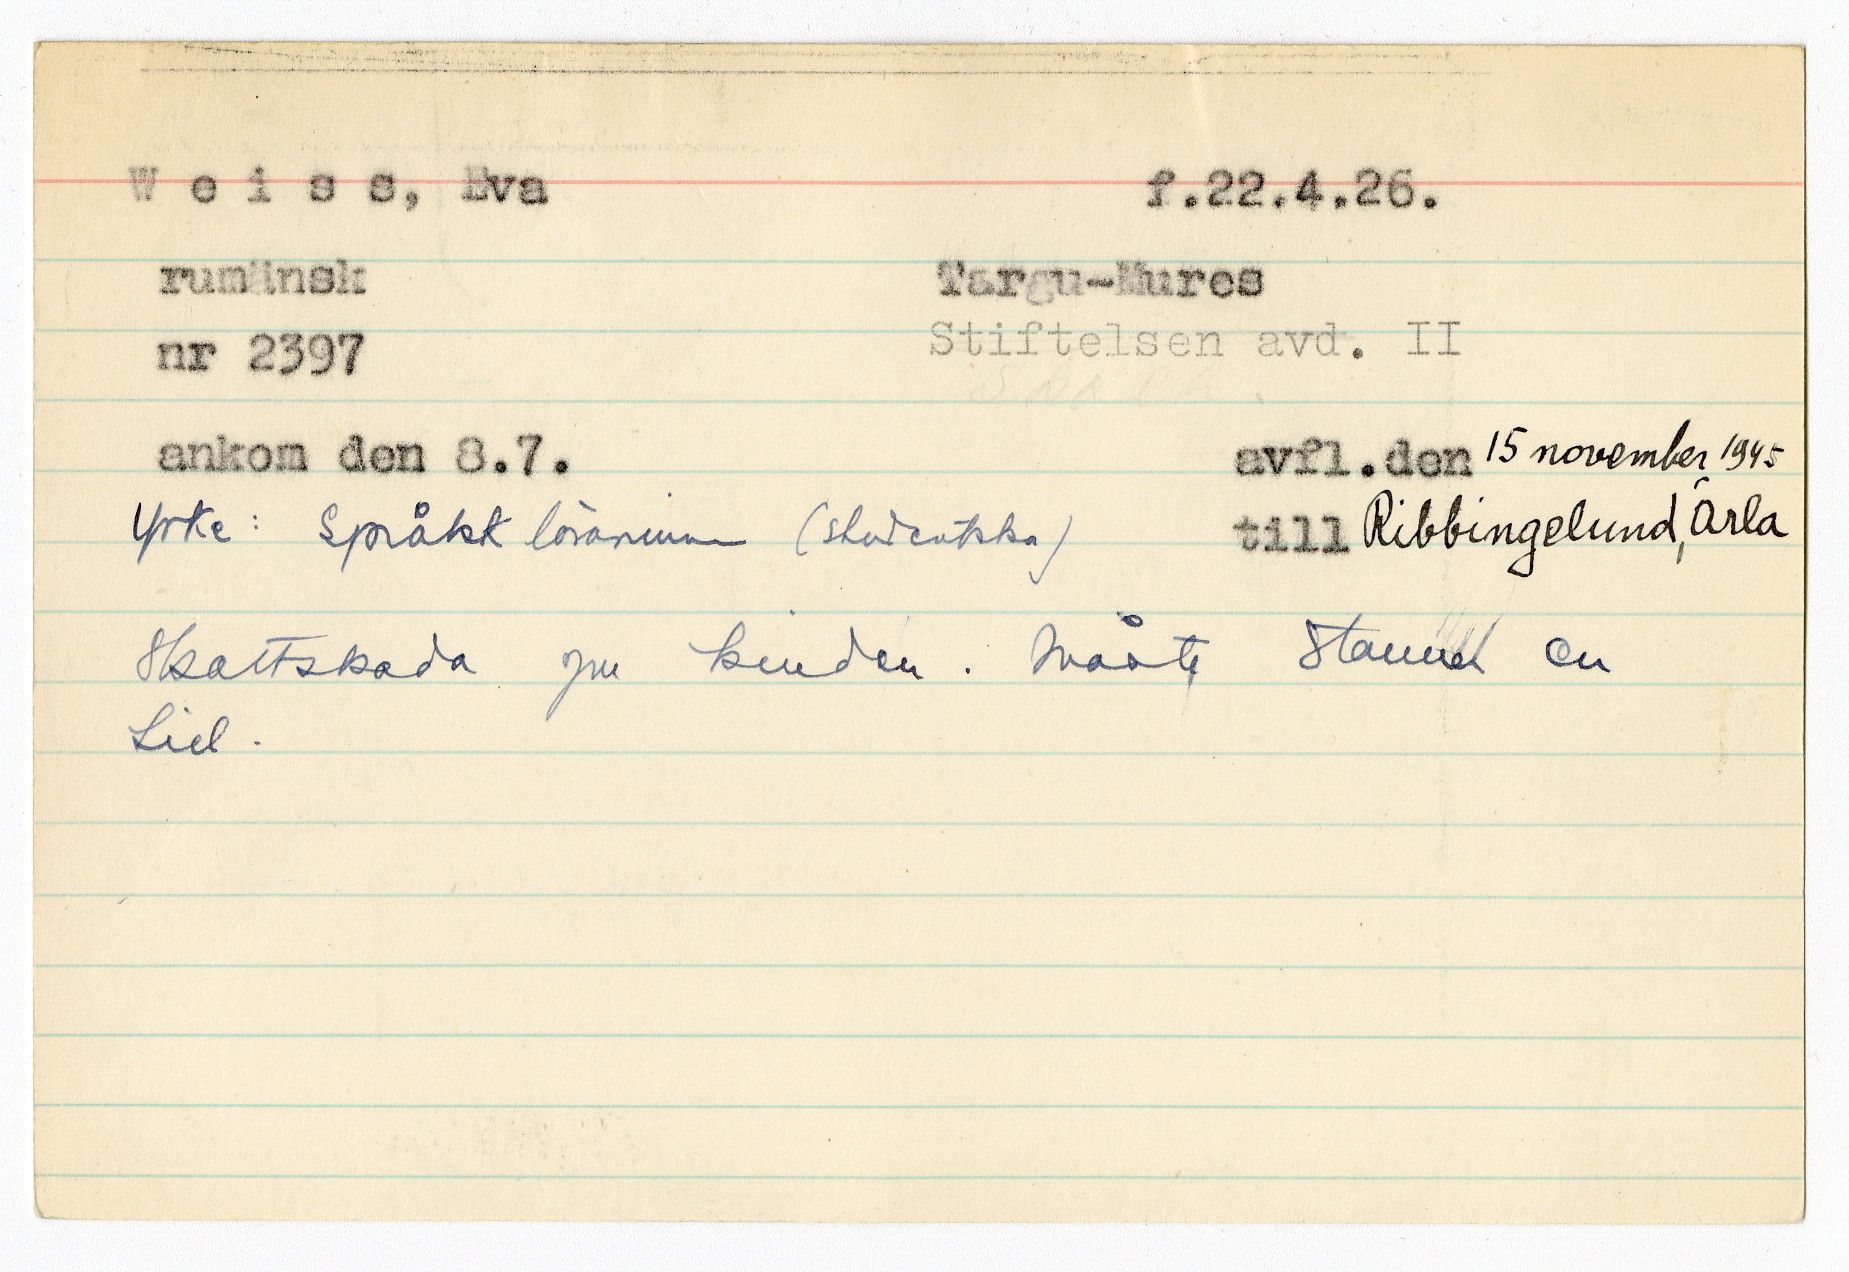 W e i s s, Eva f.22.4.26.
rumänsk Targu-Mures
nr 2397 Stiftelsen avd. II
ankom den 8.7. avfl.den 15 november 1945
Yrke: Språkk lärarinna (studentska) till Ribbingelund, Ärla
Skottskada kinden. Måste stanna en
tid.